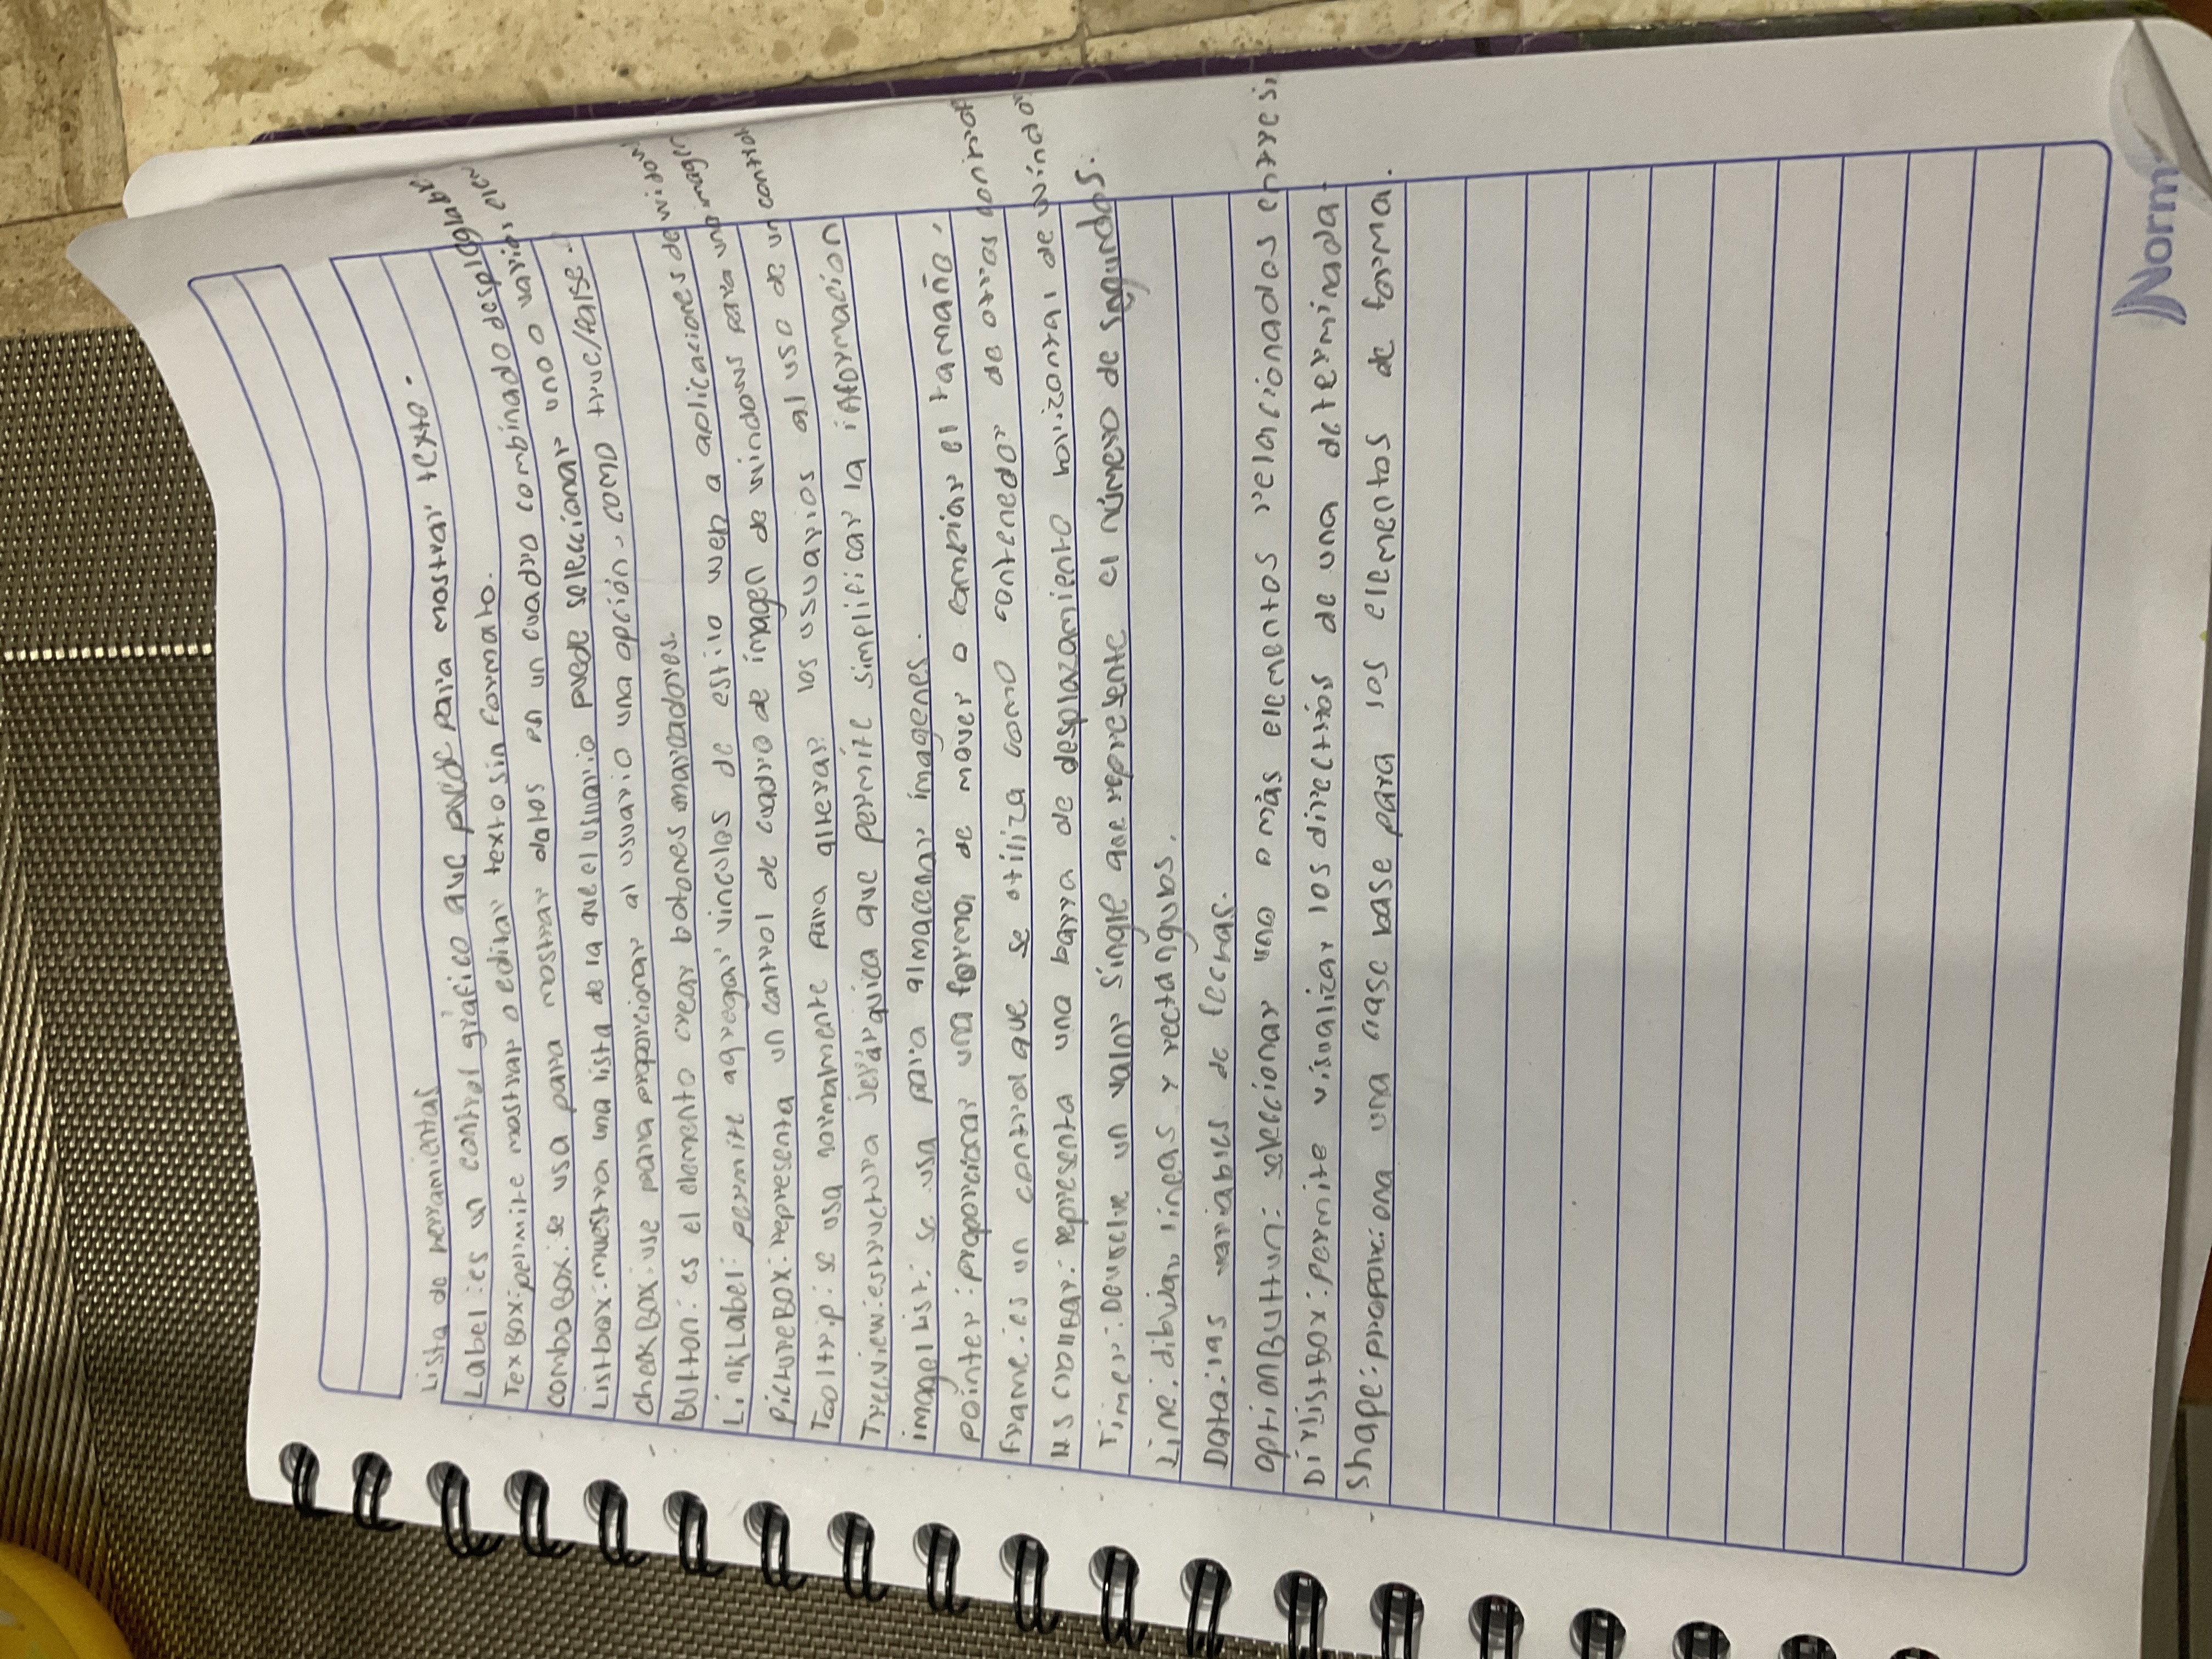 Lista de herramientas
Label: es un control gráfico que puede para mostrar texto.
TexBox: permite mostrar o editar texto sin formato.
comboBox: se usa para mostrar datos en un cuadro combinado desplegable
Listbox: muestra una lista de la que el usuario puede seleccionar uno o varios elem
checkBox: use para proporcionar al usuario una opción, como true/false.
Button: es el elemento crear botones marcadores.
LinkLabel: permite agregar vinculos de estilo web a aplicaciones de
PictureBox: representa un control de cuadro de imagen de windows para una imagen
Tooltrip: se usa normamente para alterar los usuarios al uso de un control
Treeview: estructura jerárquica que permite simplificar la información
imagelist: se usa para almacenar imagenes.
pointer: proporcionar una forma de mover o cambiar el tamaño.
frame: es un control que se utiliza como contenedor de otros control
HScrollBar: representa una barra de desplazamiento horizontal de window
Timer: Devuelve un valor single que represente el número de segundos.
Line: dibujar lineas y rectangulos.
Data: las variables de
OptionButtun: seleccionar uno o más elementos relacionados entre si
DirlistBox: permite visualizar los directrios de una determinada
shape: proporciona una clase base para los elementos de forma.
Norma